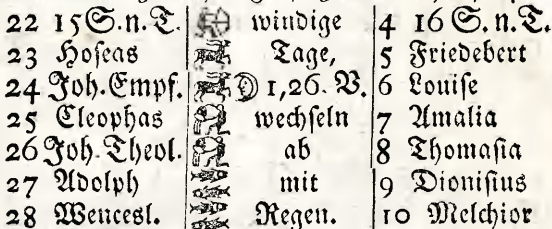 22 15 S.n.T. windige 4 16 S.n.T.
23 Hoſeas Tage, 5 Friedebert
24 Joh.Empf. 1,26. V. 6 Louiſe
25 Cleophas wechſeln 7 Amalia
26 Joh.Theol. ab 8 Thomaſia
27 Adolph mit 9 Dioniſius
28 Wencesl. Regen. 10 Melchior